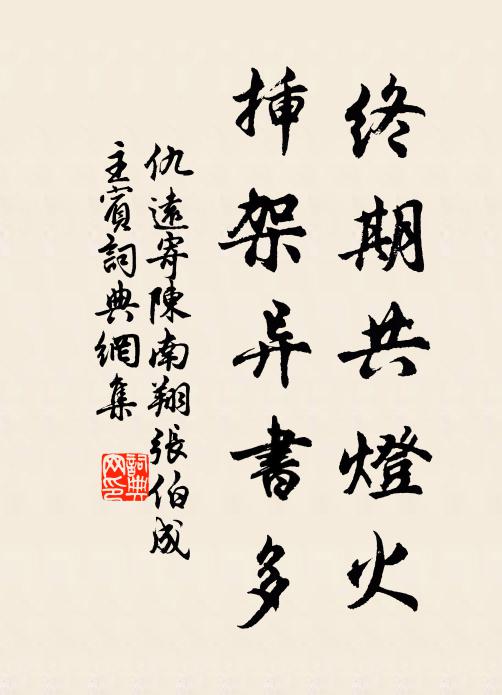 終期共燈火
揷架异書多
仇遠寄陳南翔張伯成
主賓詞典網集
詞典網印